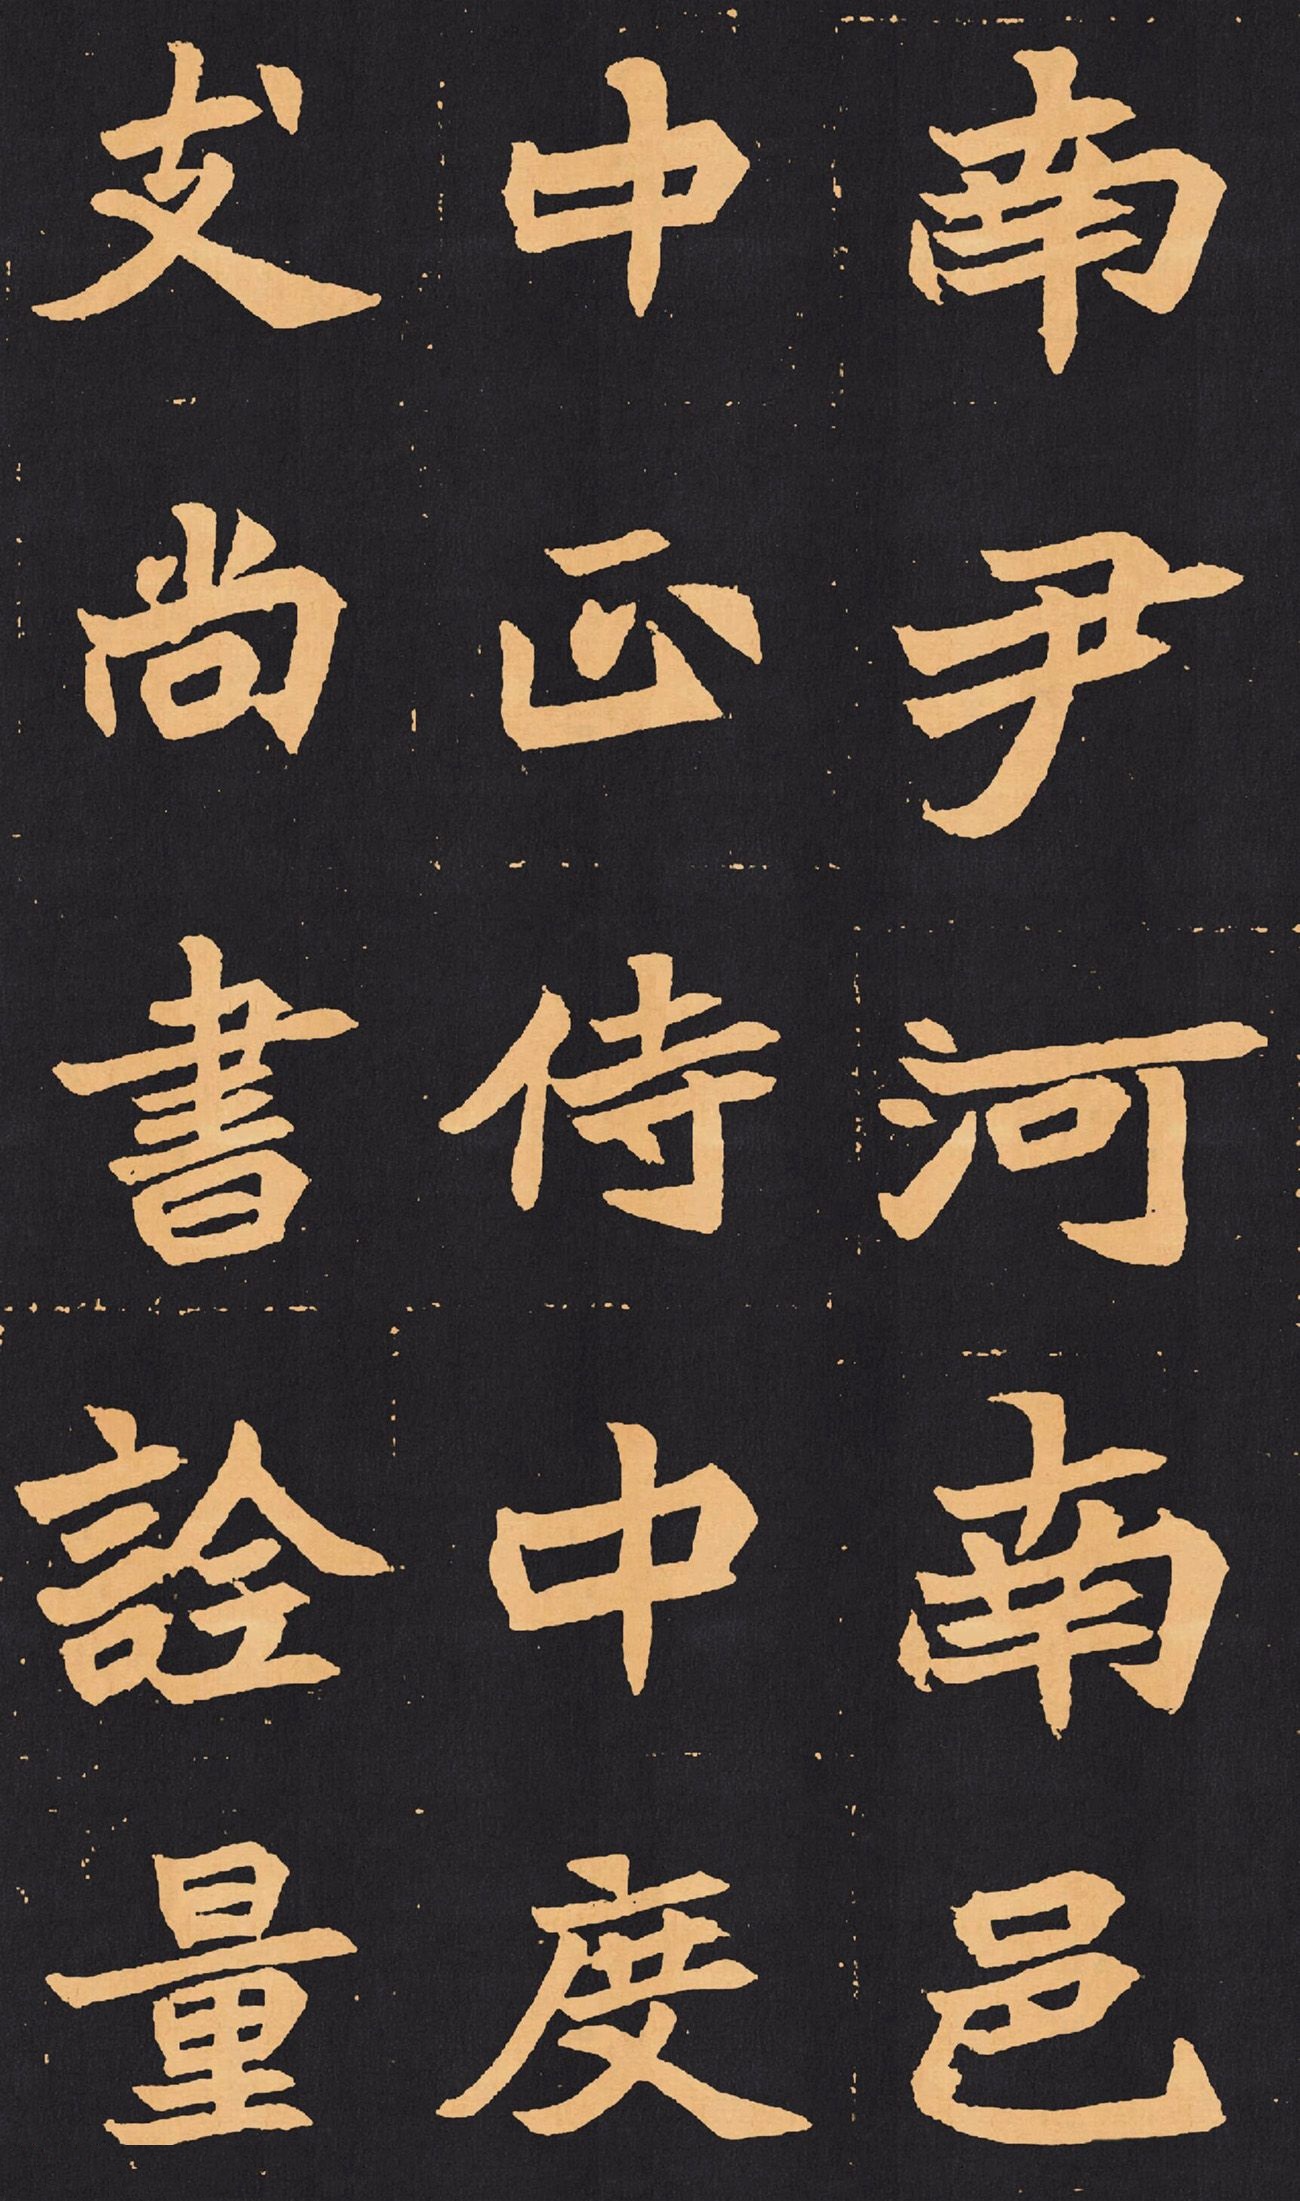 南尹河南邑
中正侍中度
支尚書詮量